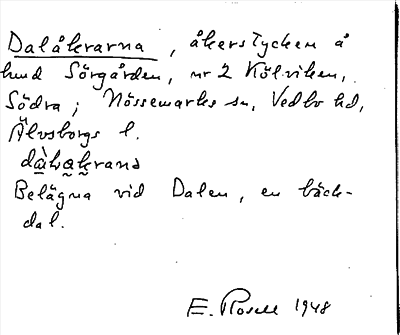 Dalåkrarna, åkerstycken å
hmd Sörgården, nr 2 Kölviken,
Södra; Nössemarks sn, Vedbo hd,
Älvsborgs l.
Belägna vid Dalen, en bäck-
dal.
E. Rosell 1948